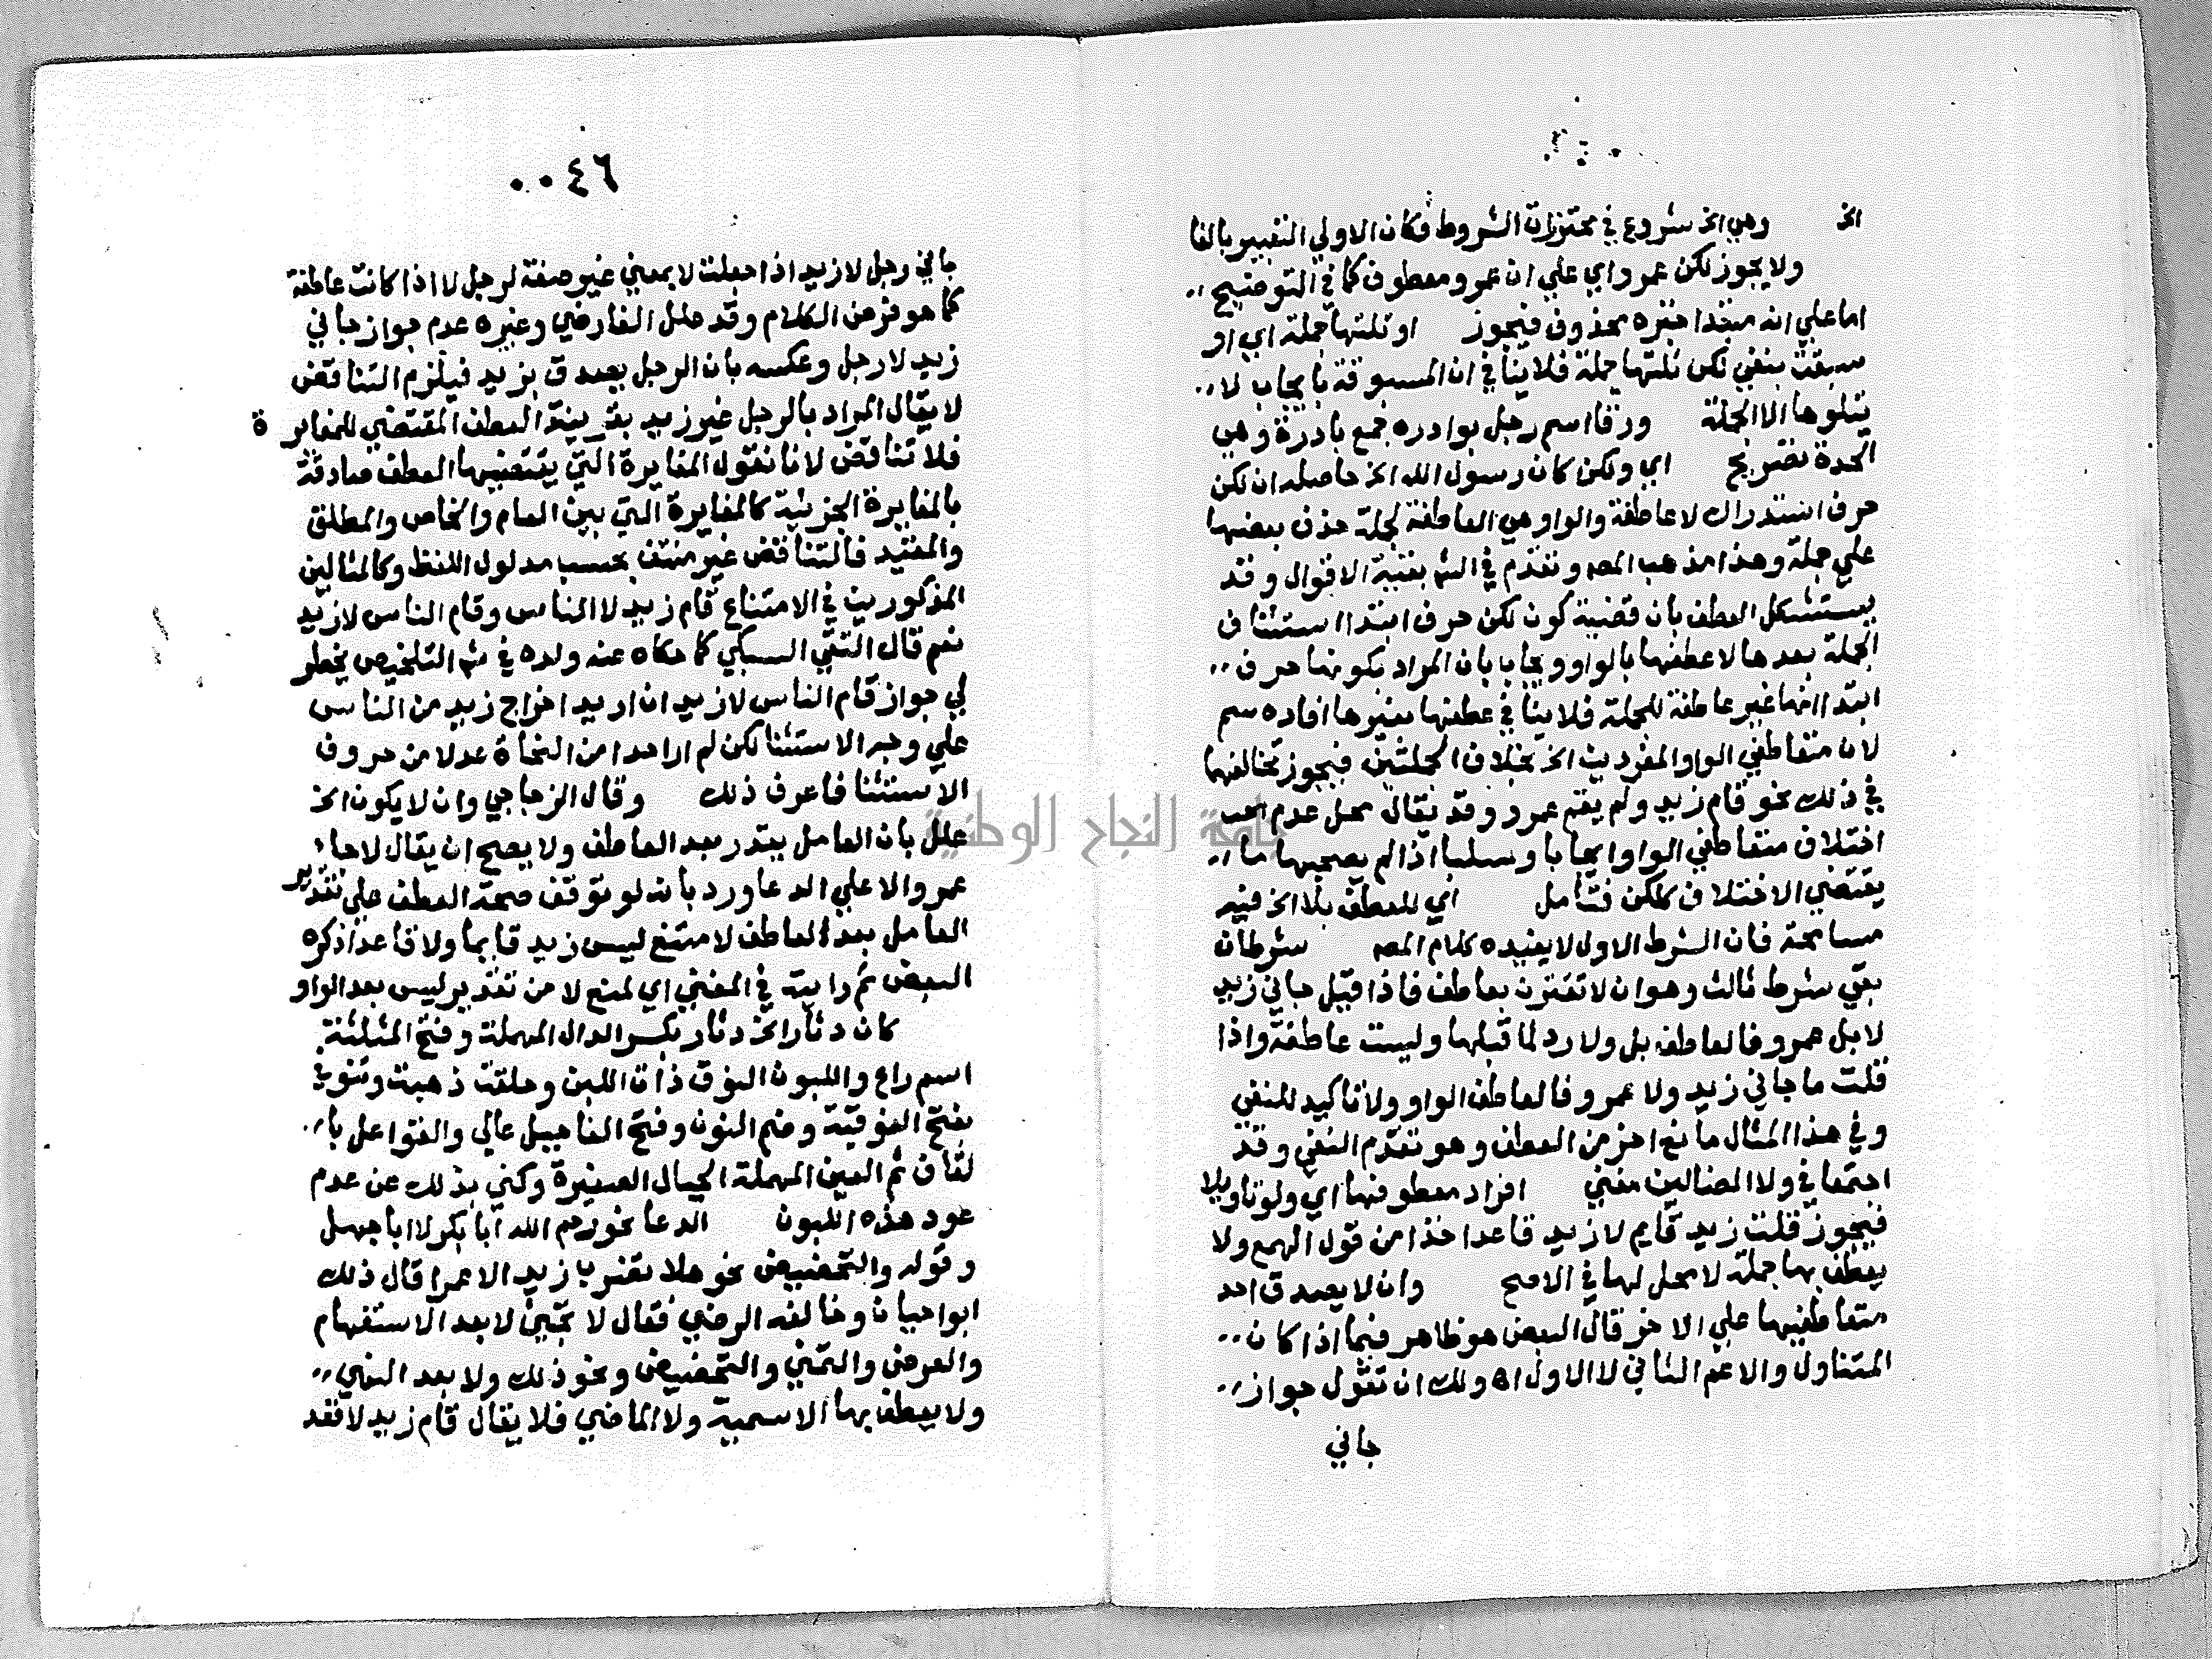 الخ وهي الخ شروع في محترزات الشروط فكان الاولي التعبير بالفا
ولا يجوز لكن عمرو اي علي ان عمرو معطوف كما في التوضيح
اما علي انه مبتدا خبره محذوف فيجوز او تلتها جملة اي او
سبقت بنفي لكن تلتها جملة فلا ينافي ان المسبوقة بايجاب لا
يتلوها الا الجملة ورقا اسم رجل بوادره جمع بادرة وهي
الحدة تصريح اي ولكن كان رسول الله الخ حاصله ان لكن
حرف استدراك لا عاطفة والواو هي العاطفة لجملة حذف بعضها
علي جملة وهذا مذهب المصه وتقدم في الشه بقية الاقوال وقد
يستشكل العطف بان قضية كون لكن حرف ابتدا استئناف
الجملة بعدها لا عطفها بالواو ويجاب بان المراد بكونها حرف
ابتدا انها غير عاطفة للجملة فلا ينافي عطفها بغيرها افاده سم
لان متعاطفي الواو المفردين الخ بخلاف الجملتين فيجوز تخالفهما
في ذلك نحو قام زيد ولم يقم عمرو وقد يقال محل عدم
اختلاف متعاطفي الواو ايجابا وسلبا اذا لم يصحبها ما
يقتضي الاختلاف كلكن فتامل اي للعطف بلا الخ فيه
مسامحة فان الشرط الاول لا يفيده كلام المصه شرطان
بقي شرط ثالث وهو ان لا تقترن بعاطف فاذا قيل جاني زيد
لا بل عمرو فالعاطف بل ولا رد لما قبلها وليست عاطفة واذا
قلت ما جاني زيد ولا عمرو فالعاطف الواو ولا تاكيد للنفي
وفي هذا المثال مانع اخر من العطف وهو تقدم النفي وقد
اجتمعا في ولا الضالين مغني افراد معطوفها اي ولو تاويلا
فيجوز قلت زيد قايم لا زيد قاعدا خذا من قول الهمع ولا
يعطف بها جملة لا محل لها في الاصح وان لا يصدق احد
متعاطفيها علي الاخر قال البعض هو ظاهر فيما اذا كان
المتناول والاعم الثاني لا الاول اه ولك ان تقول جواز
جاني
٠٠٤٦
جاني رجل لا زيد اذا جعلت لا بمعني غير صفة لرجل لا اذا كانت عاطفة
كما هو فرض الكلام وقد علل الفارضي وغيره عدم جواز جاني
زيد لا رجل وعكسه بان الرجل يصدق بزيد فيلزم التناقض
لا يقال المراد بالرجل غير زيد بقرينة العطف المقتضي للمغايرة
فلا تناقض لانا نقول المغايرة التي يقتضيها العطف صادقة
بالمغايرة الجزئية كالمغايرة التي بين العام والخاص والمطلق
والمقيد فالتناقض غير منتف بحسب مدلول اللفظ وكالمثالين
المذكورين في الامتناع قام زيد لا الناس وقام الناس لا زيد
نعم قال التقي السبكي كما حكاه عنه ولده في شه التلخيص يخطر
لي جواز قام الناس لا زيد ان اريد اخراج زيد من الناس
علي وجه الاستثنا لكن لم ار احدا من النحاة عد لا من حروف
الاستثنا فاعرف ذلك وقال الزجاجي وان لا يكون الخ
علل بان العامل يقدر بعد العاطف ولا يصح ان يقال لا جا
عمرو الا علي الدعا ورد بانه لو توقف صحة العطف علي تقدير
العامل بعد العاطف لامتنع ليس زيد قايما ولا قاعدا ذكره
البعض ثم رايته في المغني اي لمنع لا من تقدير ليس بعد الواو
كان دثارا الخ دثار بكسر الدال المهملة وفتح المثلثة
اسم راع واللبون النوق ذات اللبن وحلقت ذهبت وتنوفي
بفتح الفوقية وضم النون وفتح الفا جبل عالي والقواعل با
لقاف ثم العين المهملة الجبال الصغيرة وكني بذلك عن عدم
عود هذه اللبون الدعا نحو رحم الله ابا بكر لا ابا جهل
وقوله والتحضيض نحو هلا تضرب زيدا لا عمرا قال ذلك
ابوا حيان وخالفه الرضي فقال لا تجيئ لا بعد الاستفهام
والعرض والتمني والتحضيض ونحو ذلك ولا بعد النهي
ولا يعطف بها الاسمية ولا الماضي فلا يقال قام زيد لا قعد
جامعة النجاح الوطنية